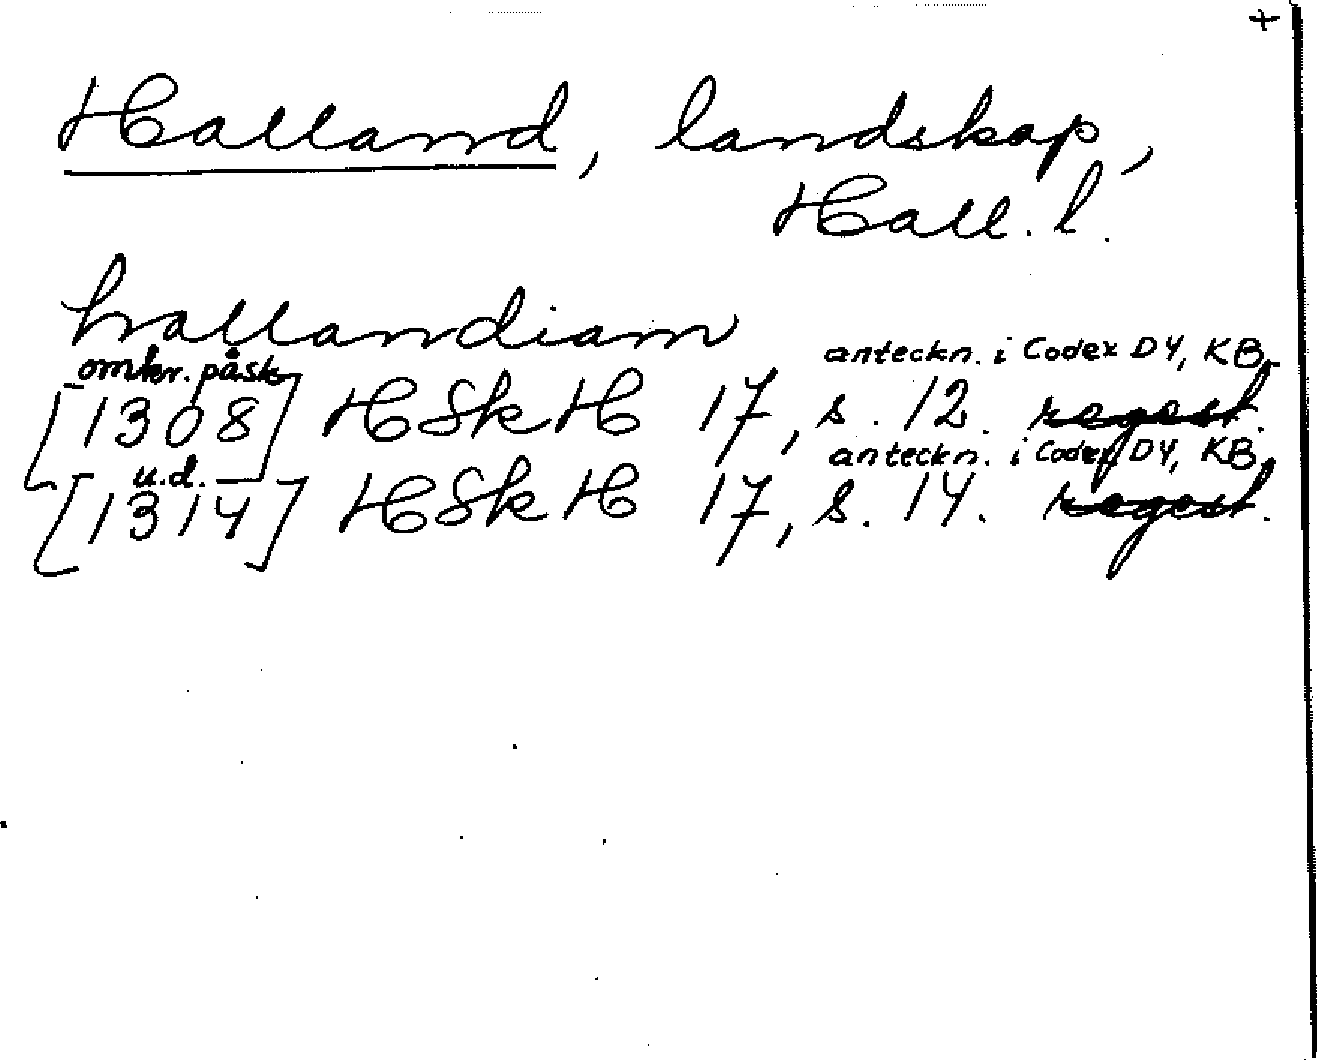 +
Halland, landskap,
Hall. l.
hallandiam
omkr. påsk anteckn. i Codex D4, KB
[1308] HSkH 17, s. 12. regest.
u.d. anteckn. i Codex D4, KB
[1314] HSkH 17, s. 14. regest.